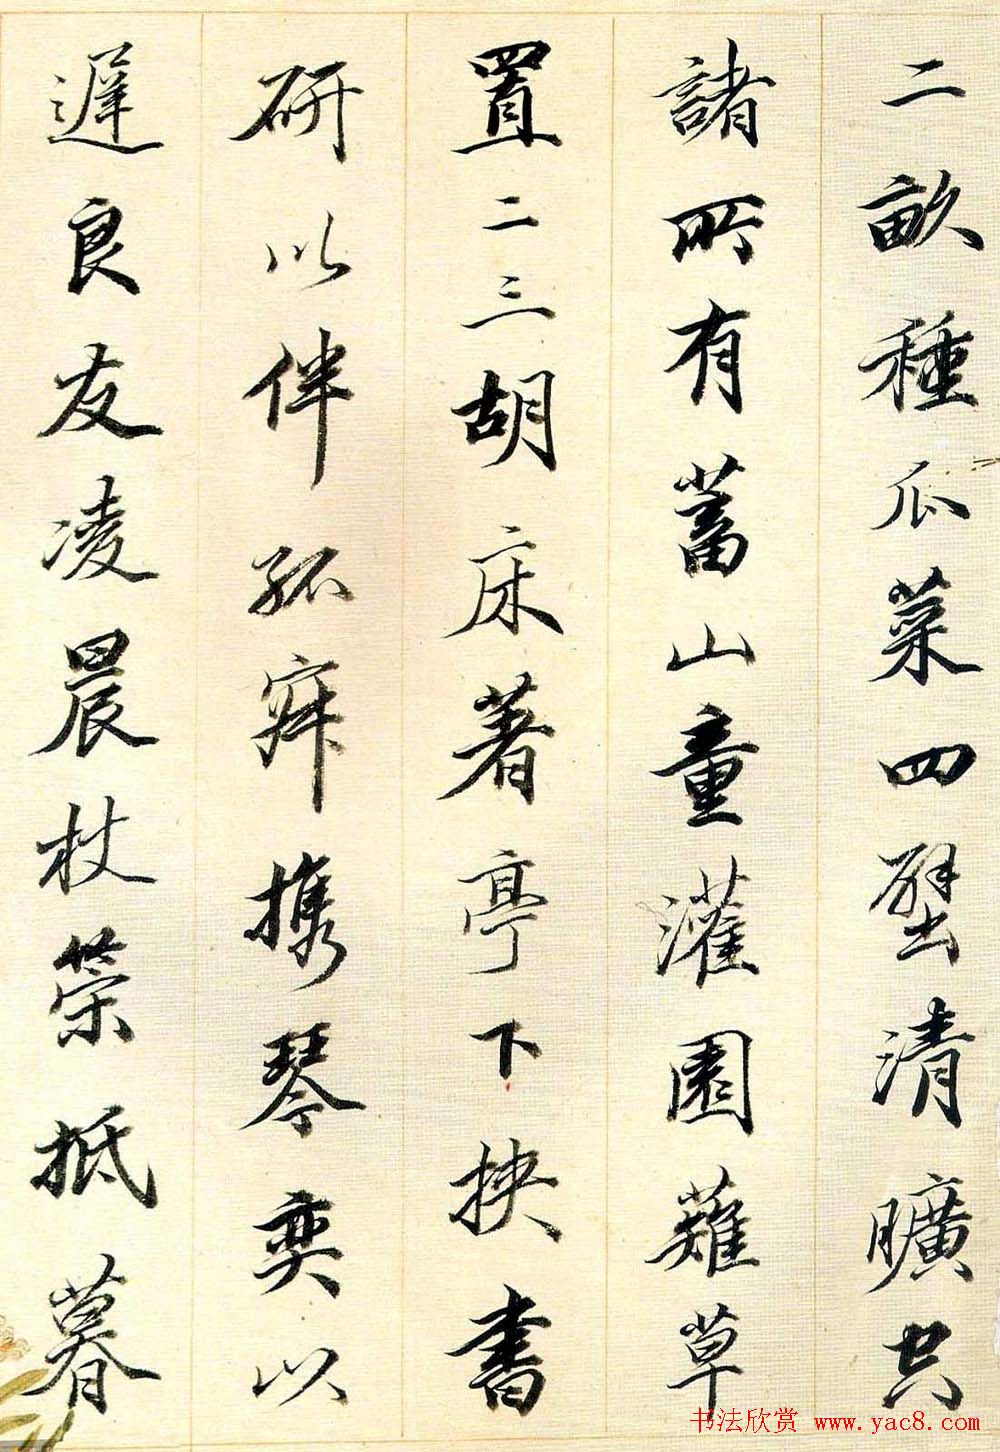 二畝種瓜菜四壁清曠空
諸所有蓄山童灌園薙草
置二三胡床著亭下挾書
研以伴孤寂携琴奕以
遲良友凌晨杖策抵暮
书法欣赏 www.yac8.com